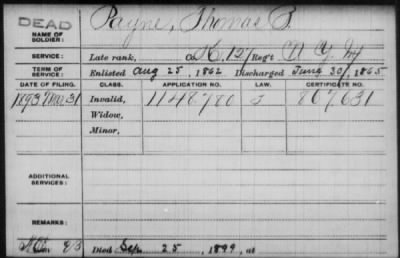 DEAD
NAME OF SOLDIER: Payne, Thomas B.
SERVICE: Late rank, Co. H, 127 Reg't N. Y. Inf
TERM OF SERVICE: Enlisted Aug 25, 1862 Discharged June 30, 1865
DATE OF FILING. CLASS. APPLICATION NO. LAW. CERTIFICATE NO.
1893 Mar. 31 Invalid, 1148780 867631
Widow,
Minor,
ADDITIONAL SERVICES:
REMARKS:
Died Sep. 25, 1899, at